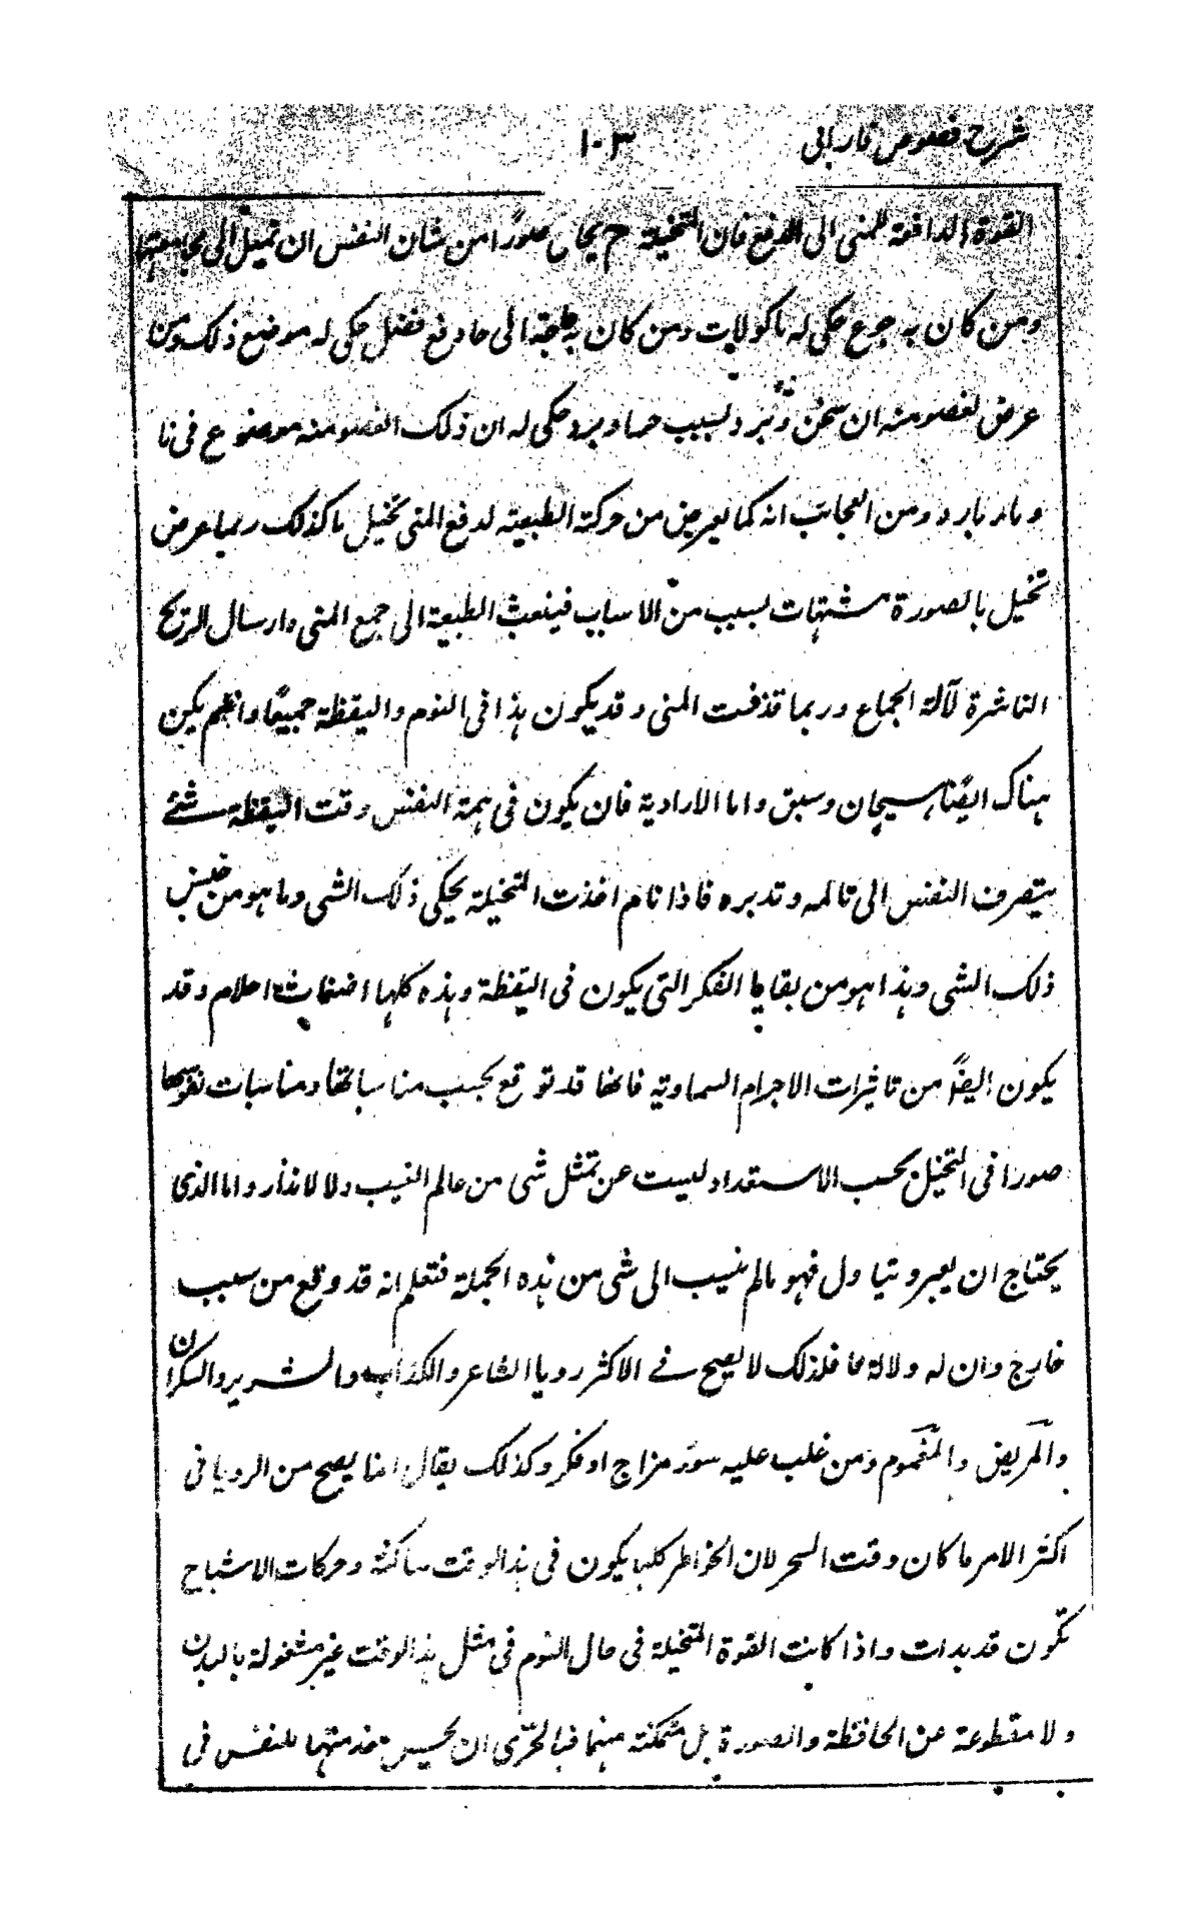 شرح فصوص فارابی ۱۰۳
القوة الدافعة للمنى الى الدفع فان المتخيلة ح يحاكى صورًا من شان النفس ان تميل الى مجامعتها
ومن كان به جوع حكى له ماكولات ومن كان به حاجة الى دفع فضل حكى له موضع ذلك ومن
عرض لعضو منه ان سخن او برد لسبب حر او برد حكى له ان ذلك العضو منه موضوع فى نار
و ماء بارد ومن العجائب انه كما يعرض من حركة الطبيعة لدفع المنى تخيل ما كذلك ربما عرض
تخيل ما لصورة مشتهاة لسبب من الاسباب فينعث الطبيعة الى جمع المنى وارسال الريح
الناشرة لآلة الجماع وربما قذفت المنى و قد يكون هذا فى النوم واليقظة جميعًا وان لم يكن
هناك ايضًا هيجان وسبق واما الارادية فان يكون فى همة النفس وقت اليقظة شئ
يتصرف النفس الى تامله وتدبره فاذا نام اخذت المتخيلة يحكى ذلك الشى وما هو من جنس
ذلك الشى وهذا هو من بقايا الفكر التى يكون فى اليقظة وهذه كلها اضغاث احلام وقد
يكون ايضًا من تاثيرات الاجرام السماوية فانها قد توقع بحسب مناسباتها ومناسبات نفوسها
صورا فى التخيل بحسب الاستعداد ليست عن تمثل شى من عالم الغيب ولا لانذار واما الذى
يحتاج ان يعبر و يتاول فهو مالم ينسب الى شى من هذه الجملة فتعلم انه قد وقع من سبب
خارج وان له دلالة ما فلذلك لا يصح فى الاكثر رويا الشاعر والكذاب والشرير والسكران
والمريض والمغموم ومن غلب عليه سوء مزاج او فكر وكذلك يقال انما يصح من الرويا فى
اكثر الامر ما كان وقت السحر لان الخواطر كلها يكون فى هذا الوقت ساكنة وحركات الاشباح
تكون قد هدات واذا كانت القوة المتخيلة فى حال النوم فى مثل هذا الوقت غير مشغولة بالبدن
ولا مقطوعة عن الحافظة والمصورة بل متمكنة منهما فبالحرى ان يحسن خدمتها للنفس فى